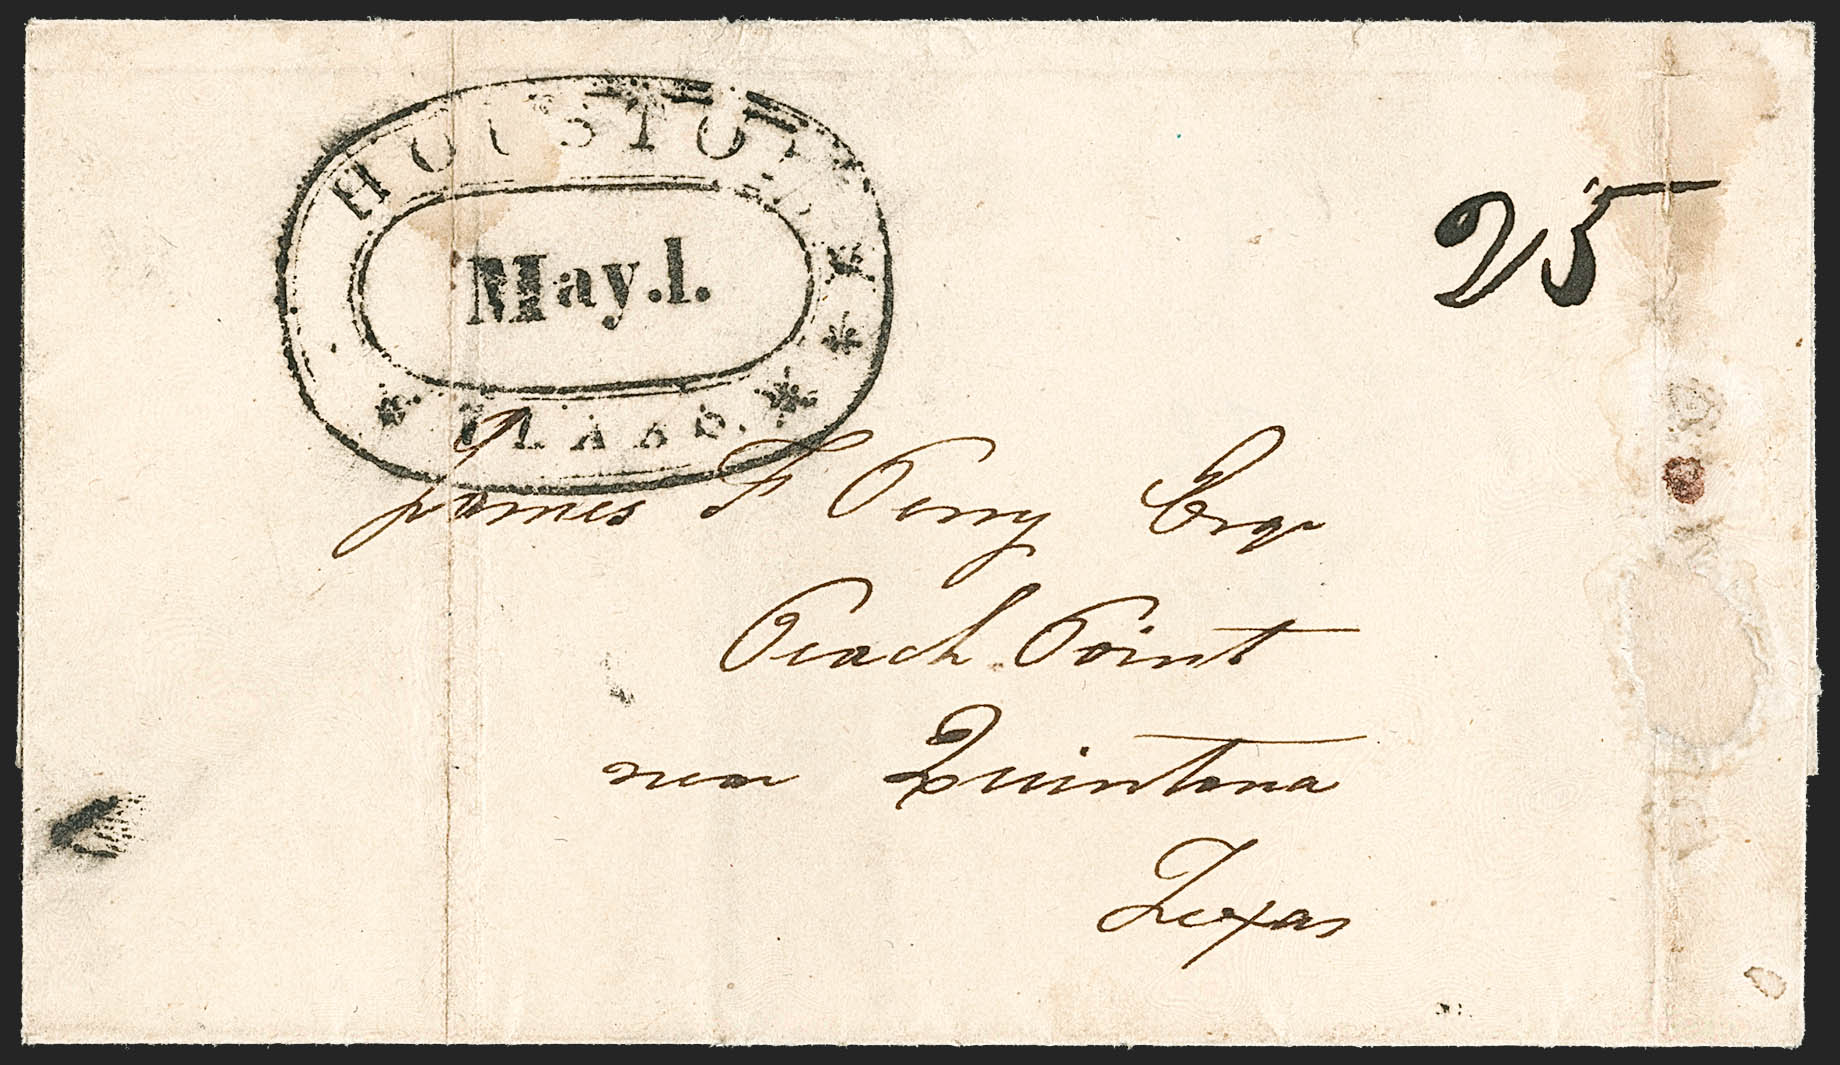 HOUSTON
May.1.
TEXAS.
25
James F Perry Esqr
Peach Point
near Quintana
Texas